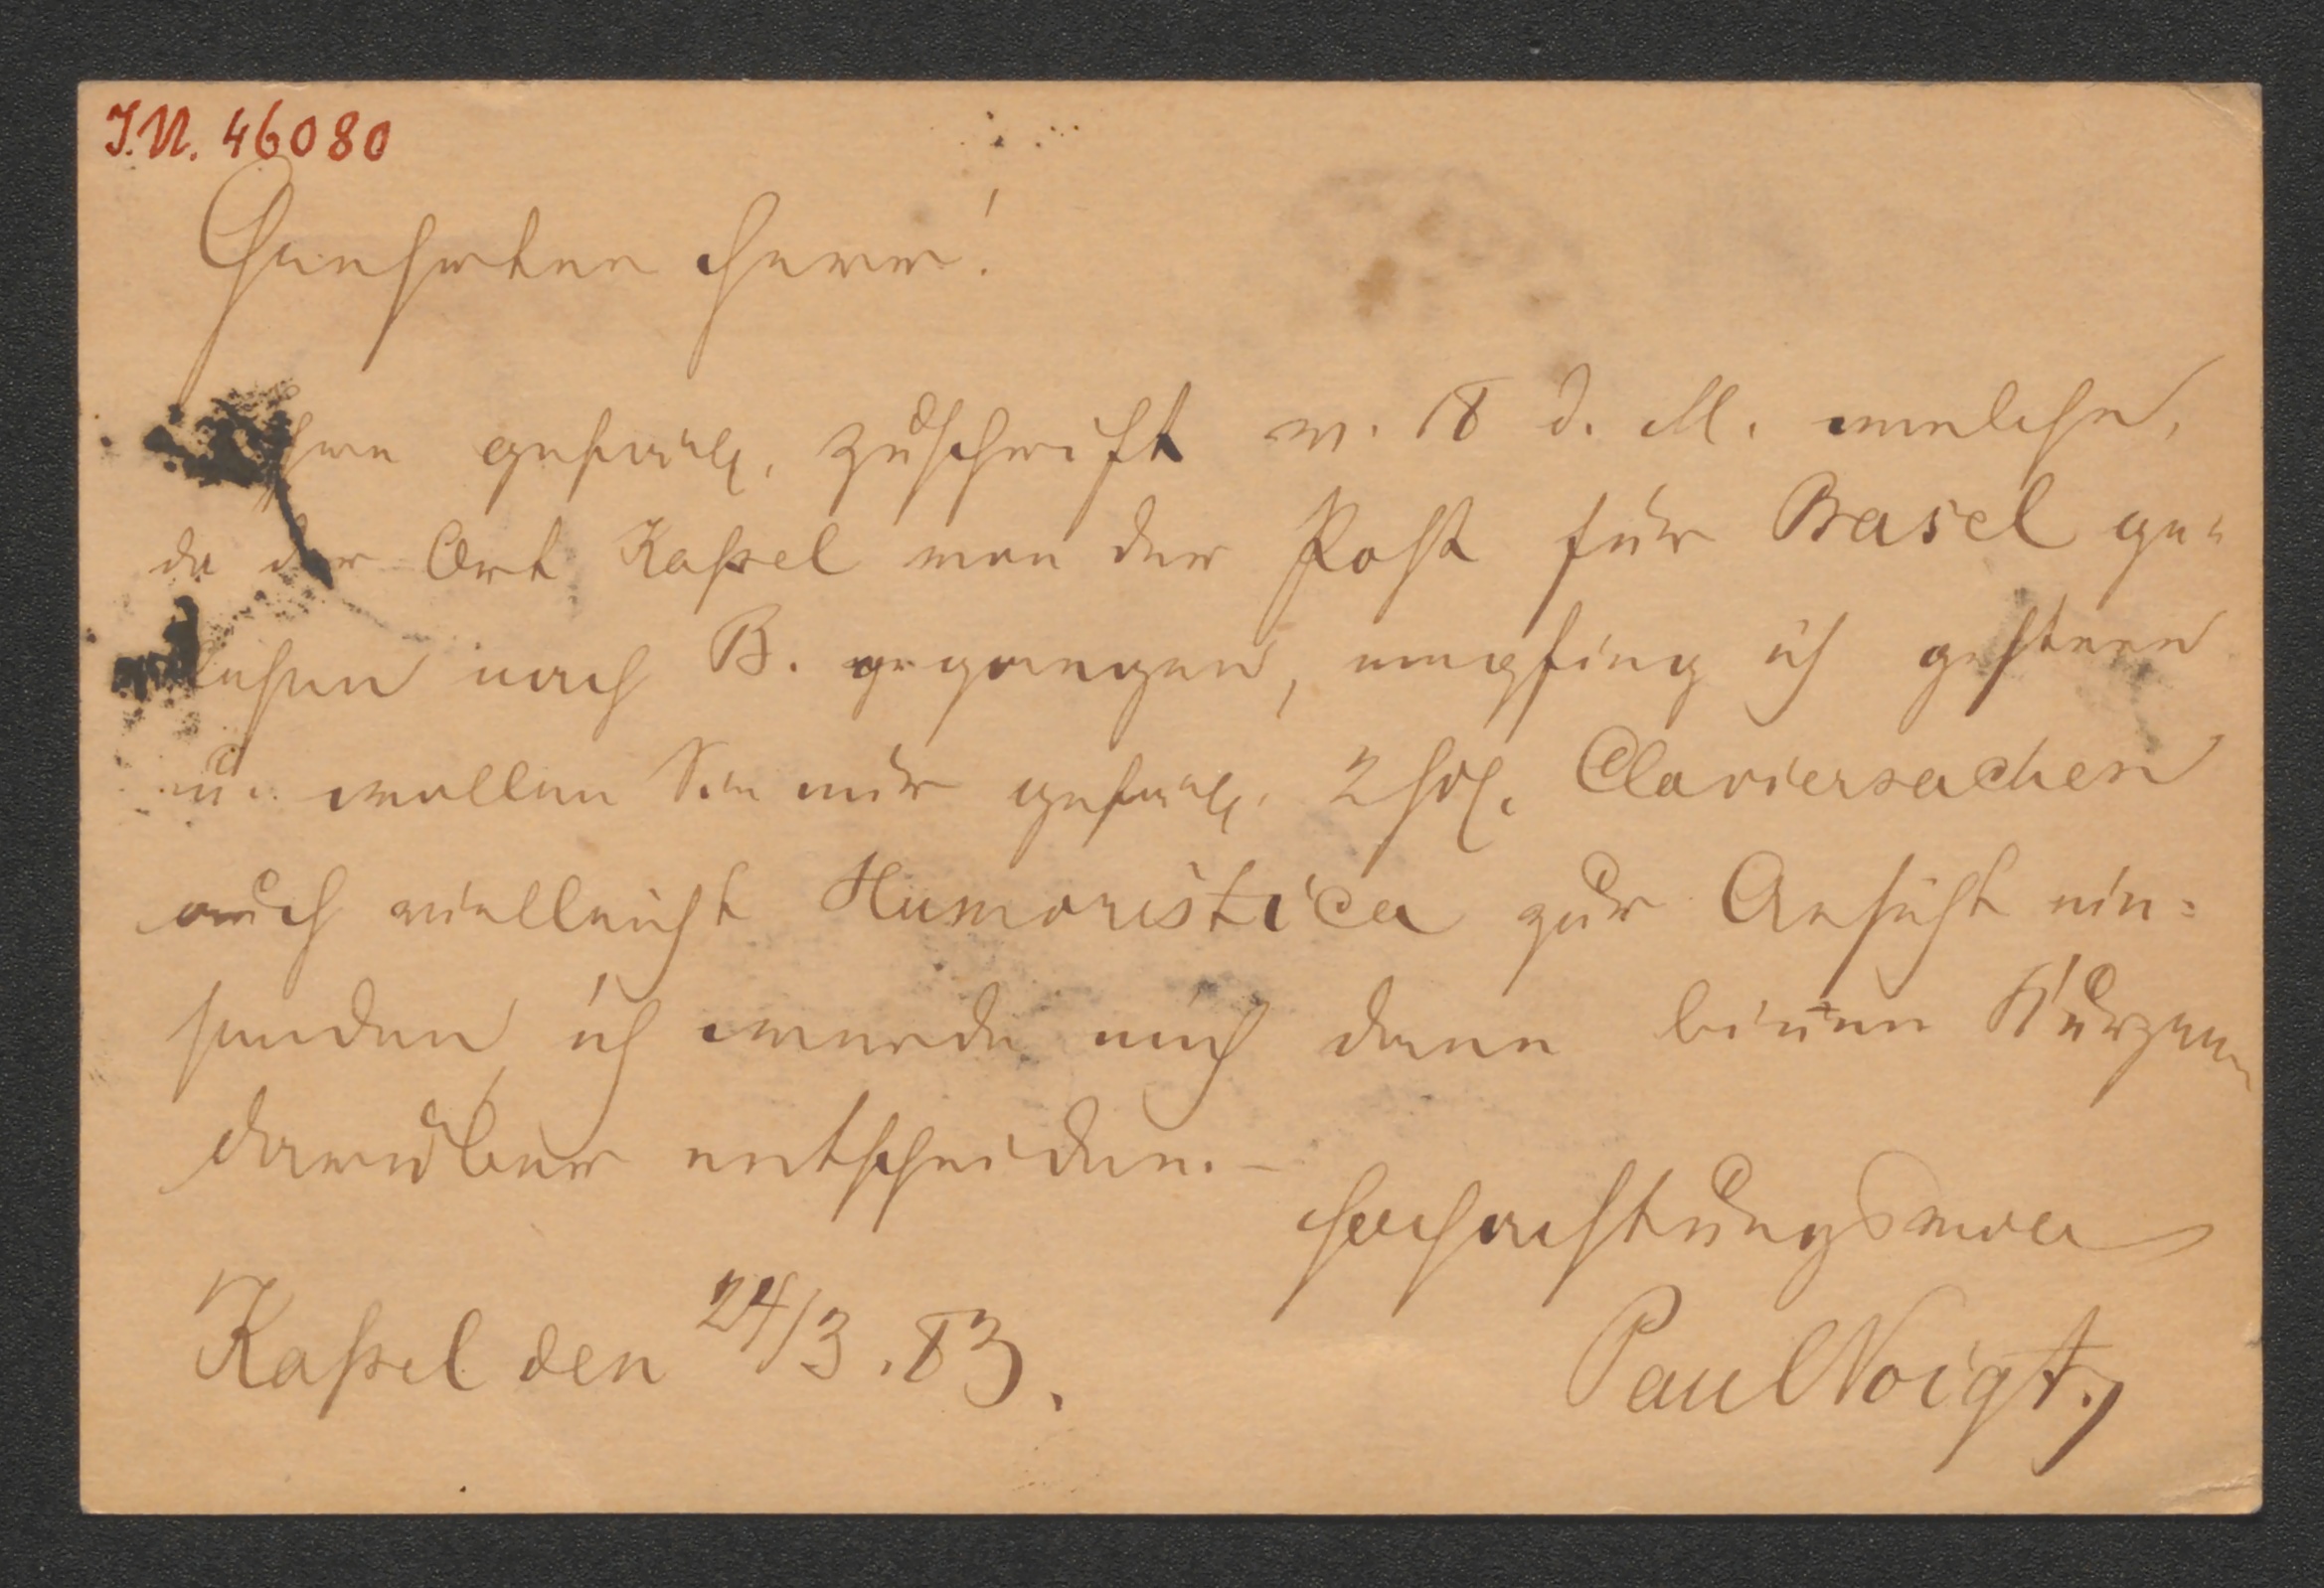 I.N. 46080
Geehrter Herr!
Ihre gefäll. Zuschrift v. 18 d. M. welche,
da der Ort Kaßel von der Post für Basel ge-
lesen nach B. gegangen, empfing ich gestern
u. wollen Sie mir gefäll. 2 hdl. Claviersachen
auch vielleicht Humoristica zur Ansicht ein-
senden, ich werde mich dann binnen Kurzem
darüber entscheiden. –
Hochachtungsvoll
Kaßel den 24/3.83.
Paul Voigt.